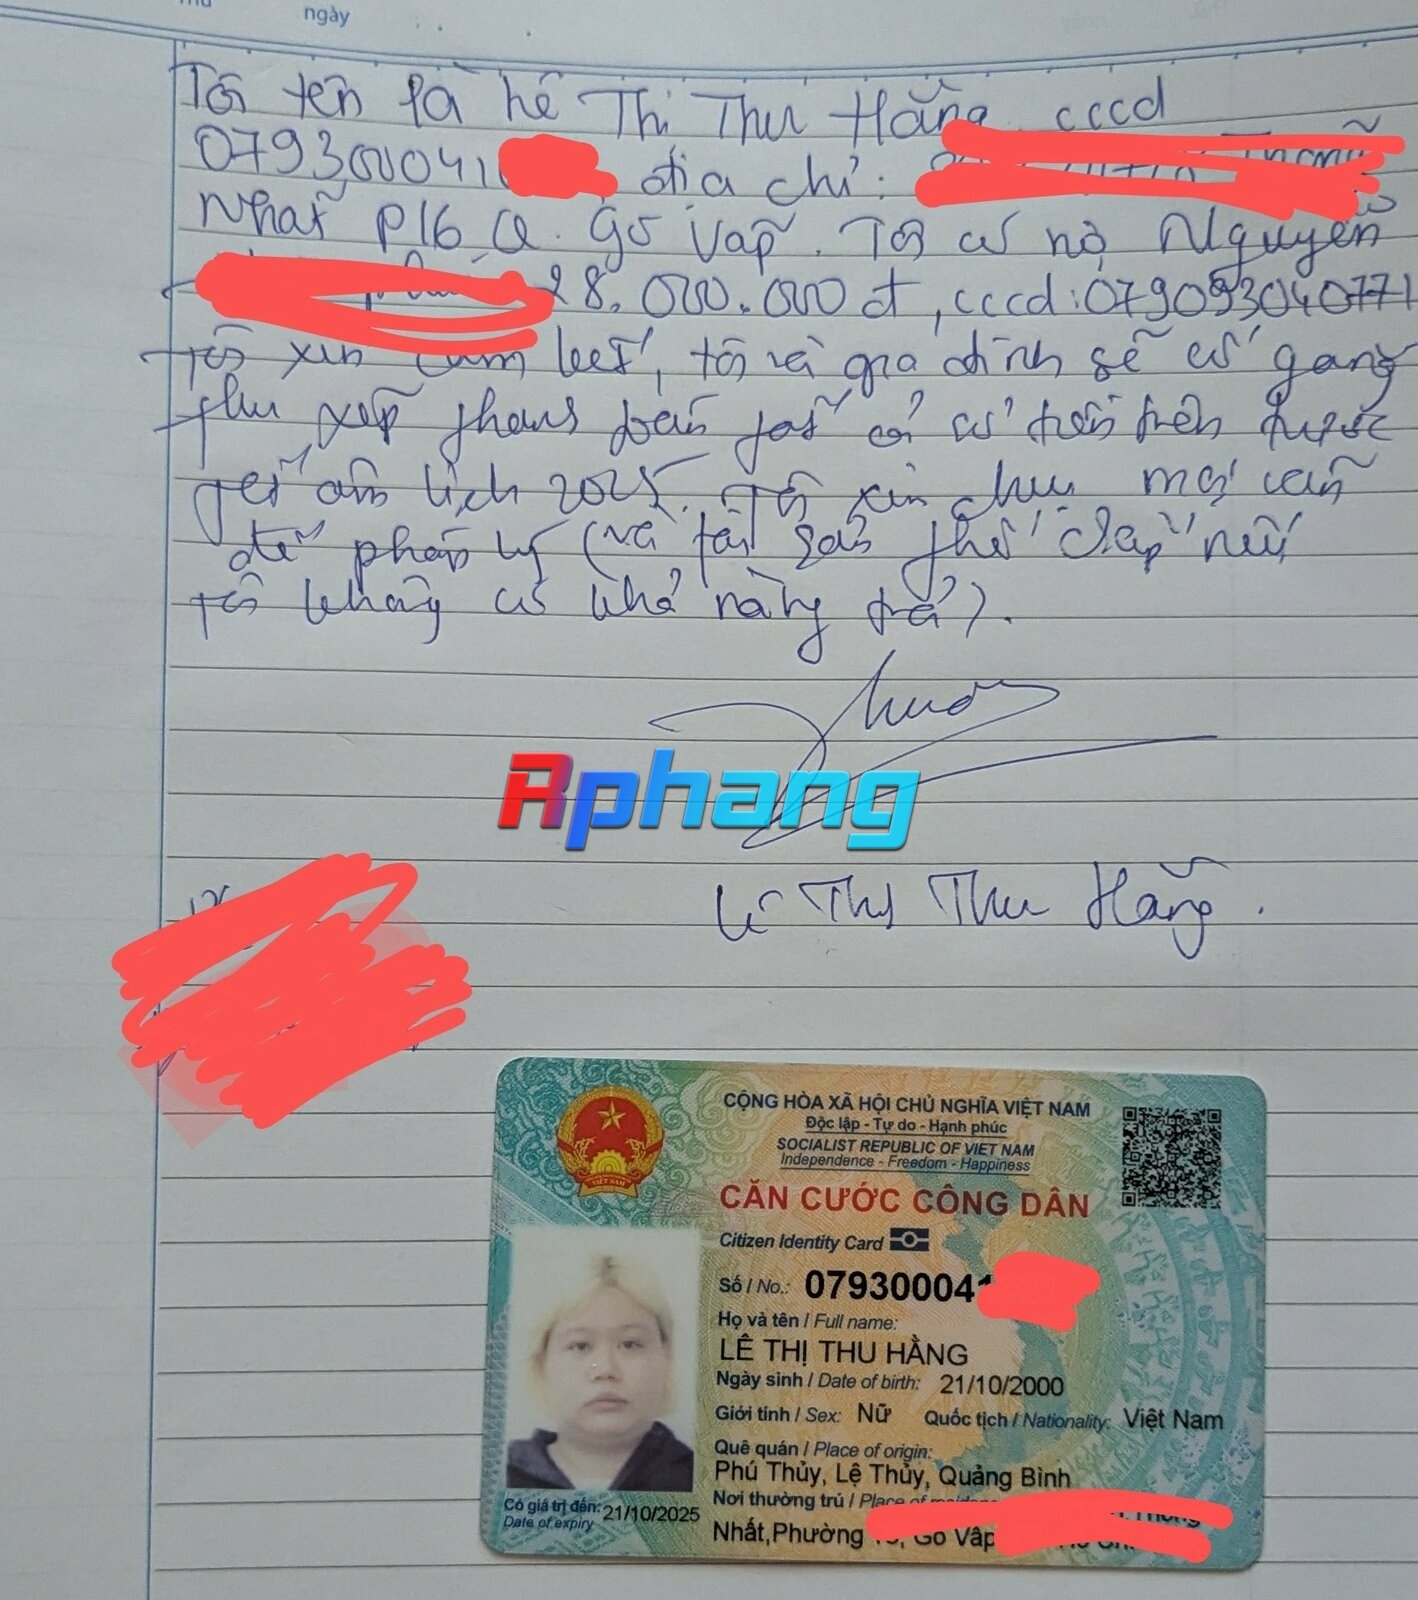 ngày
Tôi tên là Lê Thị Thu Hằng cccd
079300041 địa chỉ:
Nhất P16 Q. Gò Vấp. Tôi có nợ Nguyễn
28.000.000 đ, cccd:079093040771
Tôi xin cam kết, tôi và gia đình sẽ cố gắng
thu xếp thanh toán tất cả số tiền trên trước
tết âm lịch 2025. Tôi xin chịu mọi vấn
đề pháp lý (và tài sản thế chấp nếu
tôi không có khả năng trả).
Rphang
Lê Thị Thu Hằng.
CỘNG HÒA XÃ HỘI CHỦ NGHĨA VIỆT NAM
Độc lập - Tự do - Hạnh phúc
SOCIALIST REPUBLIC OF VIET NAM
Independence - Freedom - Happiness
CĂN CƯỚC CÔNG DÂN
Citizen Identity Card
Số / No.: 079300041
Họ và tên / Full name:
LÊ THỊ THU HẰNG
Ngày sinh / Date of birth: 21/10/2000
Giới tính / Sex: Nữ Quốc tịch / Nationality: Việt Nam
Quê quán / Place of origin:
Phú Thủy, Lệ Thủy, Quảng Bình
Nơi thường trú / Place of
Nhất, Phường Gò Vấp
Có giá trị đến: 21/10/2025
Date of expiry
VIỆT NAM